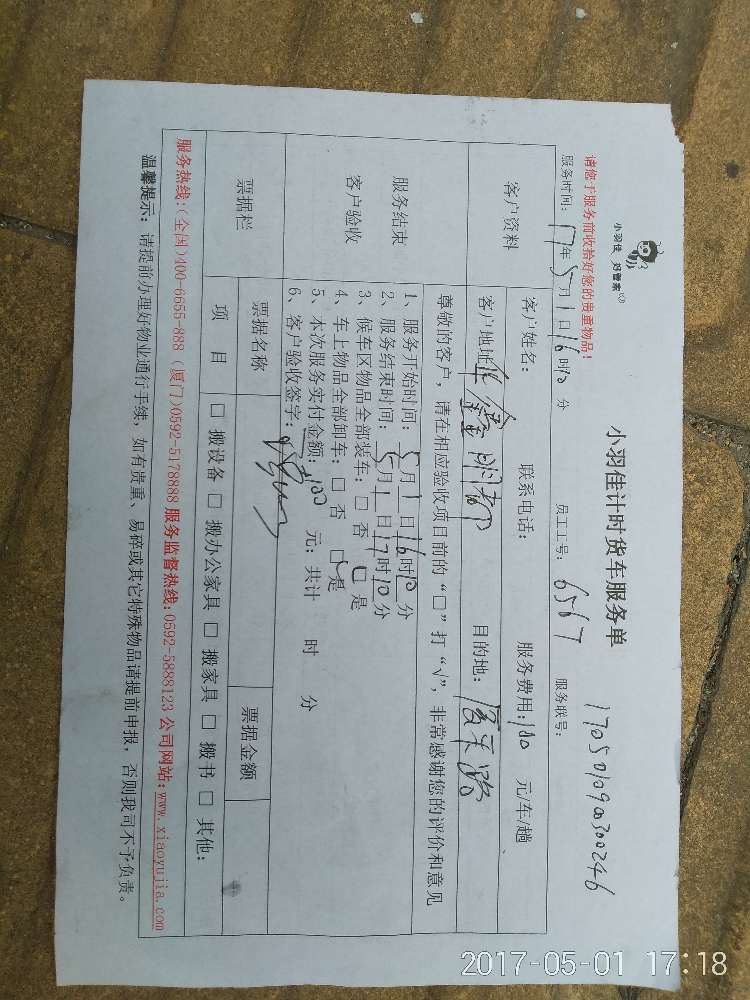 小羽佳 好管家
小羽佳计时货车服务单
170501090300246
请您于服务前收拾好您的贵重物品！
服务时间：17年5月1日16时10分 员工工号：6567 服务联号：
客户资料
客户姓名： 联系电话： 服务费用：100 元/车/趟
客户地址：华鑫明都 目的地：
尊敬的客户，请在相应验收项目前的“□”打“√”，非常感谢您的评价和意见
服务结束
客户验收
1、服务开始时间：5月1日16时10分
2、服务结束时间：5月1日17时10分
3、候车区物品全部装车：□ 否 □ 是
4、车上物品全部卸车：□ 否 □ 是
5、本次服务实付金额：100 元；共计 时 分
6、客户验收签字：
票据栏
票据名称 票据金额
项 目 □ 搬设备 □ 搬办公家具 □ 搬家具 □ 搬书 □ 其他：
服务热线：(全国)400-6655-888 (厦门)0592-5178888 服务监督热线：0592-5888123 公司网站：www.xiaoyujia.com
温馨提示：请提前办理好物业通行手续，如有贵重、易碎或其它特殊物品请提前申报，否则我司不予负责。
2017-05-01 17:18